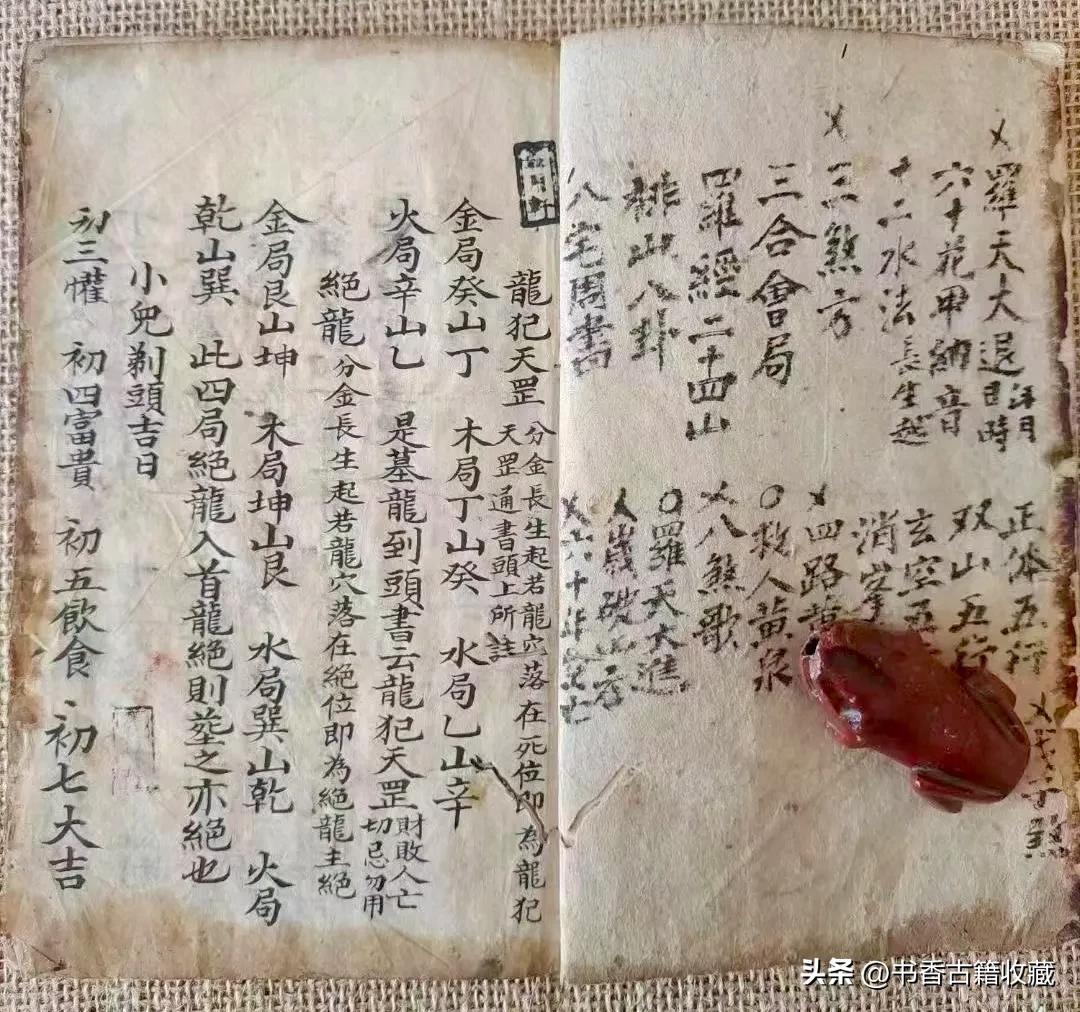 羅天大退年月日時
六十花甲納音
十二水法長生越
三煞方
三合會局
羅經二十四山
排山八卦
八宅周書
正体五行
双山五行
玄空五
消
四路黄
救人黄泉
八煞歌
羅天大進
歲破
六十年
龍犯天罡 分金長生起若龍穴落在死位即為龍犯天罡通書頭上所註
金局癸山丁 木局丁山癸 水局乙山辛
火局辛山乙 是墓龍到頭書云龍犯天罡財敗人亡切忌勿用
絕龍 分金長生起若龍穴落在絕位即為絕龍主絕
金局艮山坤 木局坤山艮 水局巽山乾 火局
乾山巽 此四局絕龍入首龍絕則塟之亦絕也
小兒剃頭吉日
初三懽 初四富貴 初五飲食 初七大吉
头条 @书香古籍收藏